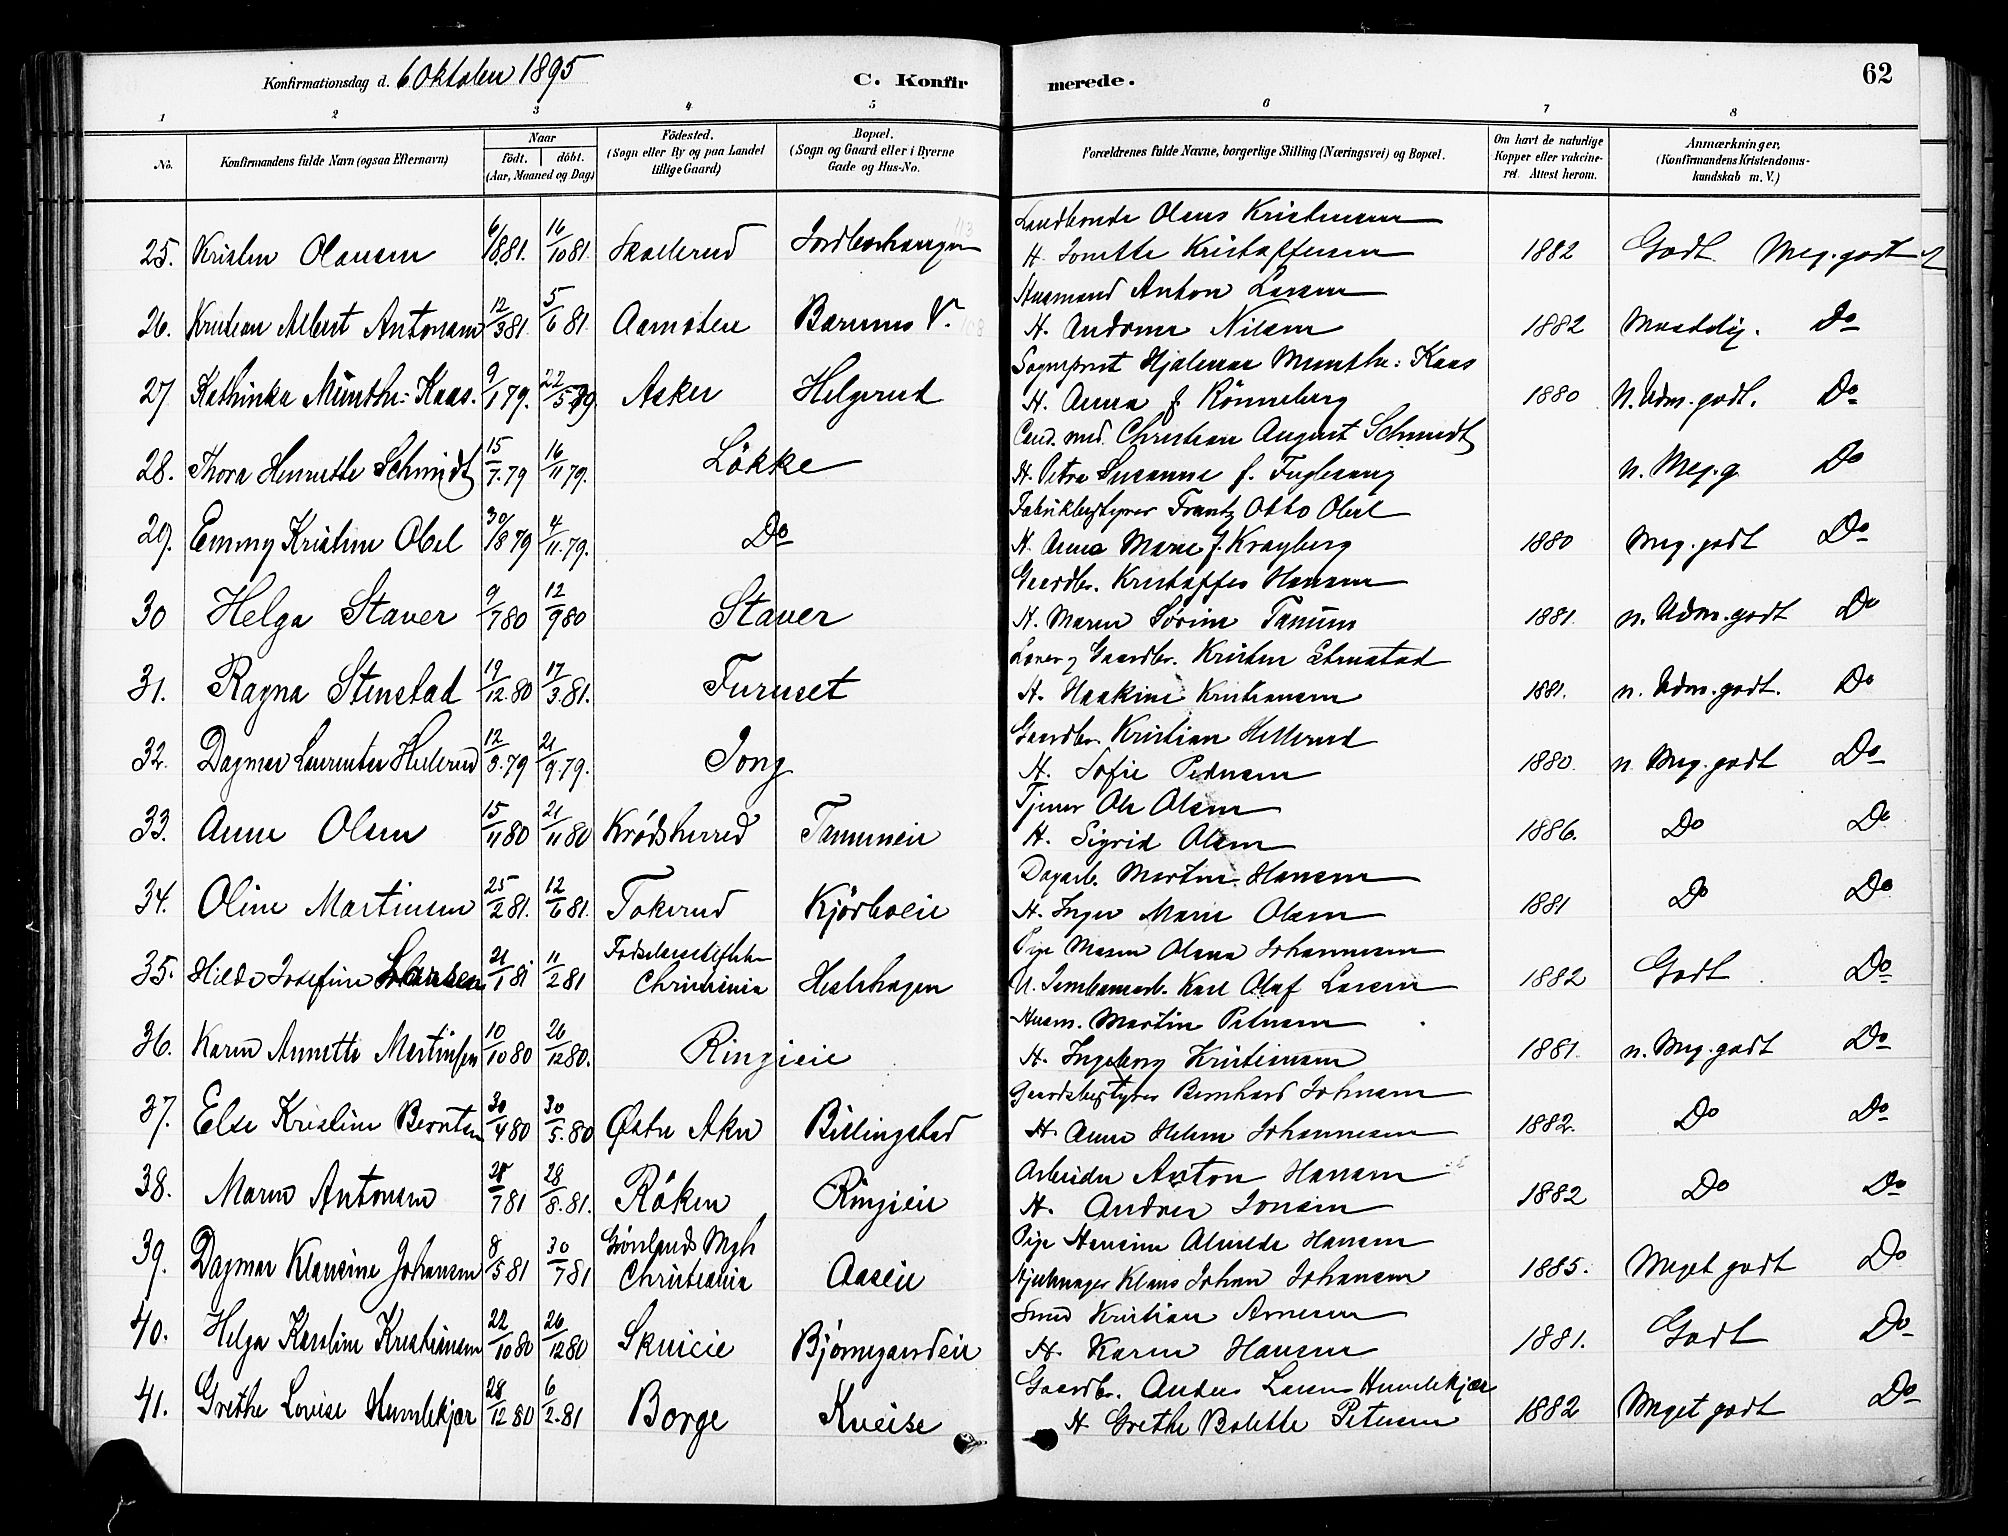 Konfirmationsdag d. 6 Oktober 1895
C. Konfir
merede.
62
1 2 3 4 5 6 7 8
No.
Konfirmandens fulde Navn (ogsaa Efternavn)
Naar
födt. döbt.
(Aar, Maaned og Dag)
Födested.
(Sogn eller By og paa Landet
tillige Gaard)
Bopæl.
(Sogn og Gaard eller i Byerne
Gade og Hus-No.
Forældrenes fulde Navne, borgerlige Stilling (Næringsvei) og Bopæl.
Om havt de naturlige
Kopper eller vakcine-
ret. Attest herom.
Anmærkninger,
(Konfirmandens Kristendoms-
kundskab m. V.)
Olaus Kristensen
25. Kristen Olausen 6/8.81. 16/10 81. Skollerud H. Kristoffersen 1882 Godt Meg. godt
Husmand Anton Larsen
26. Kristian Albert Antonsen 12/3 81. 5/6 81. Aamodten Bærums V. H. Andrine Nilsen 1882 Do
Sognprest Hjalmar Munthe-Kaas
27. Kathinka Munthe-Kaas. 9/1 79. 22/5 79 Asker Helgerud H. Anna f. Rönneberg 1880 N. Udm. godt. Do
Cand. med. Christian August Schmidt
28. Thora Henriette Schmidt 15/7.79 16/11 79. Lökke H. Petra Susanne f. Fuglesang n. Meg. g Do
Fabrikbestyrer Frantz Otto Obel
29. Emmy Kristine Obel 30/8 79 4/11.79. Do H. Anna Marie f. Krayberg 1880 Meg. godt Do
Gaardbr. Kristoffer Hansen
30 Helga Staver 9/7 80 12/9 80 Staver H. Maren Sörine Tanum 1881. n. Udm. godt Do
Gaardbr. Kristen Stenstad
31. Ragna Stenstad 19/12.80 17/3.81. Furuset H. Haakine Kristiansen 1881. n. Udm. godt. Do
Gaardbr. Kristian Hellerud
32. Dagmar Laurentze Hellerud 12/3.79 21/9 79. Jong H. Sofie Pedersen 1880. n. Meg. godt Do
Tjener Ole Olsen
33. Anne Olsen 15/11 80 21/11 80 Krödsherred Tanumeie H. Sigrid Olsen 1886. Do Do
Dagarb. Martin Hansen
34. Oline Martinsen 25/2 81. 12/6 81. Tokerud Kjörboeie H. Inger Marie Olsen 1881 Do Do
Födselsstiftelsen Pige Maren Olava Johannesen
35. Hilda Josefine Larsen 21/1 81 11/2 81 Christiania U. Jernbanearb. Karl Olaf Larsen 1882 Godt Do
Husm. Martin Petersen
36. Karen Annette Martinsen 10/10 80 26/12 80. Ringieie H. Ingeborg Kristiansen 1881. n. Meg. godt Do
Gaardsbestyrer Bernhard Johnsen
37. Else Kristine Berntsen 30/4 80 30/5.80 Østre Aker Billingstad H. Anne Helene Johannesen 1882. Do Do
Arbeider Anton Hansen
38. Maren Antonsen /7 81 28/8.81. Röken Ringieie H. Andrea Jonsen 1882 Do Do
Grönlands Mgh Pige Hansine Alvilde Hansen
39. Dagmar Klausine Johansen 8/5 81 30/7 81 Christiania Aaseie Hjulmager Klaus Johan Johansen 1885. Meget godt Do
Smed Kristian Arnesen
40. Helga Karoline Kristiansen 22/10 80 26/12 80 Skuieie Bjørnegaardeie H. Karen Hansen 1881. Godt Do
Gaardbr. Anders Larsen Humlekjær
41. Grethe Lovise Humlekjær 28/12 80 6/2.81 Borge Kveise H Grethe Bolette Petersen 1882 Meget godt Do